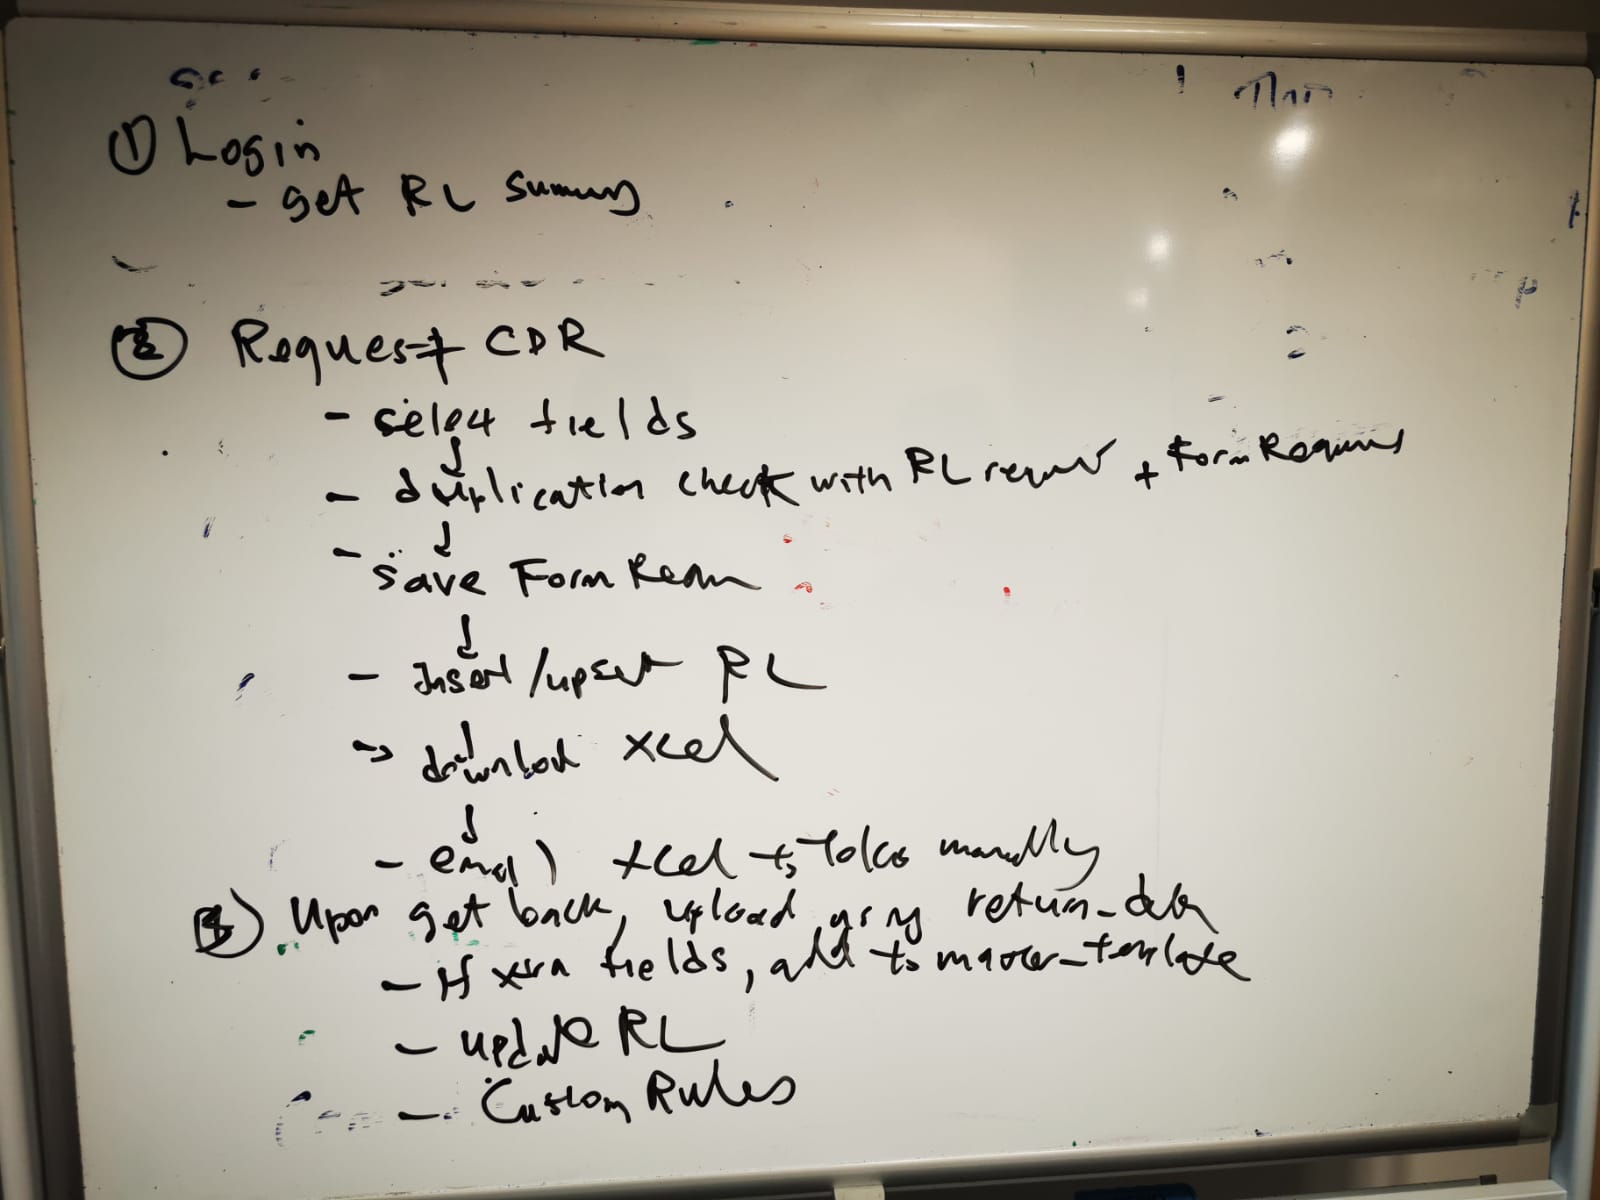 ① Login
- get RL summary
② Request CDR
- select fields
↓
- duplication check with RL request + Form Request
↓
- save Form
↓
- Insert/upsert RL
↓
→ download xcel
↓
- email xcel to Telco manually
Upon get back, upload using return_data
- If xtra fields, add to master_template
- update RL
- Custom Rules